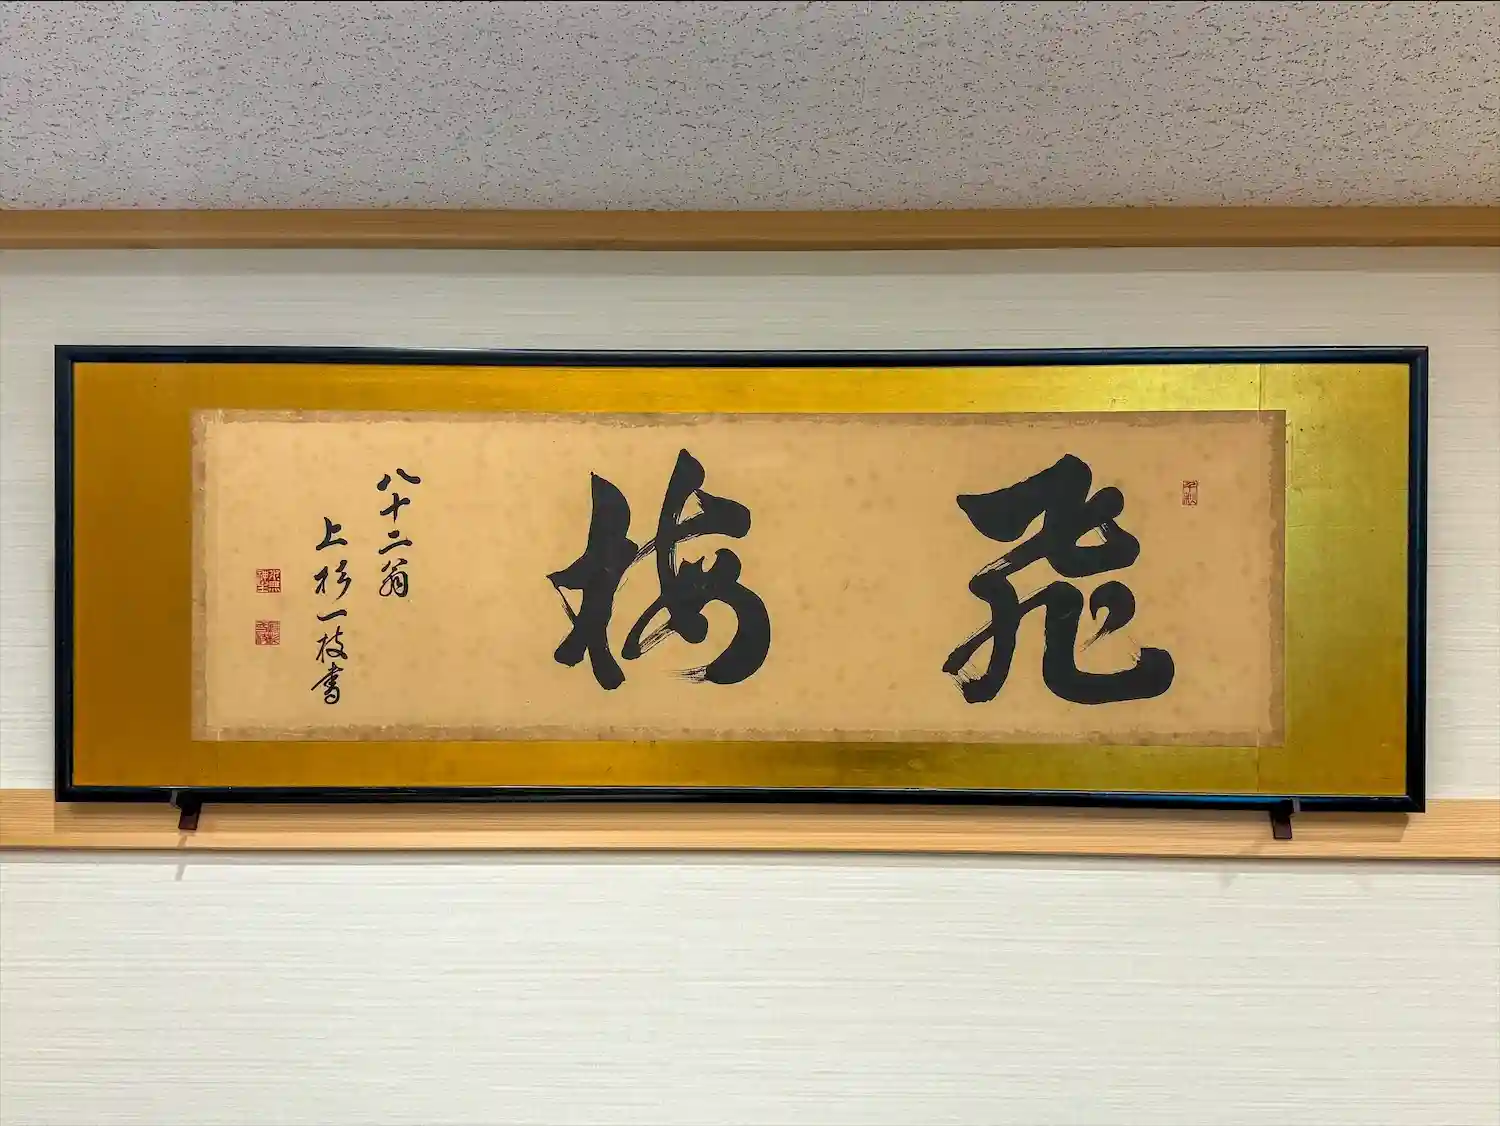 飛梅
八十二翁
上杉一枝書